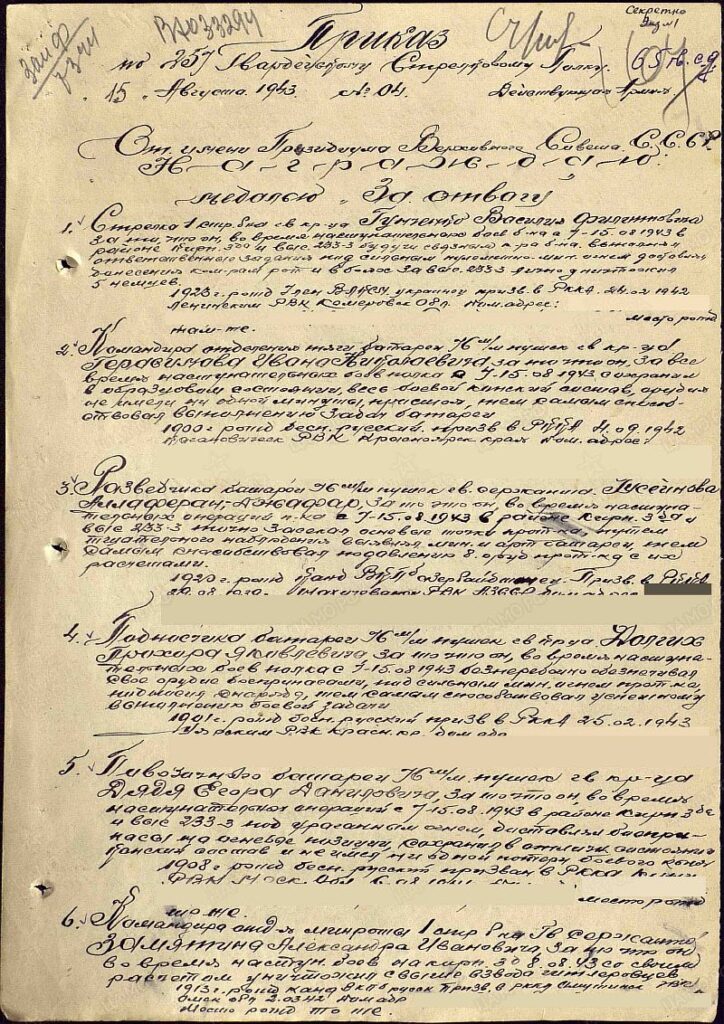 Секретно
Экз №1
Приказ
по 257 Гвардейскому Стрелковому Полку 65 гв. сд
15 Августа 1943 г. № 04 Действующая Армия
От имени Президиума Верховного Совета С.С.С.Р.
Награждаю
медалью "За отвагу"
1. Стрелка 1 стр. б-на гв кр-ца Гунченко Василия Филипповича
за то, что он, во время наступательного боев б-на с 7-15.08 1943 в
районе и выс 233-3 будучи связным к-ра б-на выполнял
ответственные задания под сильным мин. огнем доставлял
донесения ком-рам рот и в боях за выс. 233-3 лично уничтожил
5 немцев.
1923 г. рожд Член ВЛКСМ, украинец призв. в РККА 24.02 1942
Ленинским РВК Кемеровск Обл. Дом. адрес:
место рожд
там-же.
2. Командира отделения тяги батареи 76 м/м пушек гв кр-ца
Герасимова Ивана Николаевича, за то что он, за все
время наступательных боев полка с 7-15.08 1943 сохранил
в образцовом состоянии, весь боевой конский состав, орудия
не имели ни одной минуты, тем самым способ-
ствовал выполнению задач батареи
1900 г рожд бесп. русский, призв в РККА 09.1942
РВК Красноярск края Дом. адрес:
3. Разведчика батареи 76 м/м пушек гв. сержанта Гусейнова
за то что он, во время наступа-
тельной операции п-ка с 7-15.08.1943 в районе
и выс 233-3 лично засекал огневые точки прот-ка, путем
тщательного наблюдения выявлял мин. и арт батареи, тем
самым способствовал подавлению 8 оруд прот-ка с их
расчетами.
1920 г. рожд канд ВКПб азербайджанец. Призв. в РККА
РВК АзССР
4. Подносчика батареи 76 м/м пушек гв кр-ца Долгих
Прохора Яковлевича за то что он, во время наступа-
тельных боев полка с 7-15.08 1943 бесперебойно обеспечивал
свое орудие боеприпасами, под сильным мин. огнем прот-ка,
снаряды, тем самым способствовал успешному
выполнению боевой задачи
1901 г. рожд бесп. русский призв в РККА 25.02.1943
Уярским РВК Красн. кр. Дом адр
5. батареи 76 м/м. пушек гв кр-ца
Дядя Егора Даниловича, за то что он, во время
наступательных операций с 7-15.08 1943 в районе
и выс 233-3 под ураганным огнем, доставлял боепри-
пасы на огневые позиции, сохранил в отличн. состоянии
конский состав и не имел ни одной потери боевого коня
1908 г рожд бесп. русский призван в РККА
РВК Моск. Обл
место рожд
то же.
6. Командира отд-я минроты 1 стр б-на Гв Сержанта
Замятина Александра Ивановича, за то что он
во время наступ. боев на 8.08.43 со своим
расчетом уничтожил свыше взвода гитлеровцев
1913 г. рожд канд ВКПб русск призв. в РККА РВК
Омск обл 2.03.42 Дом адр
Место рожд то же.